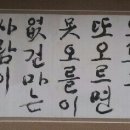 또오르면
못오를이
없건마는
사람이